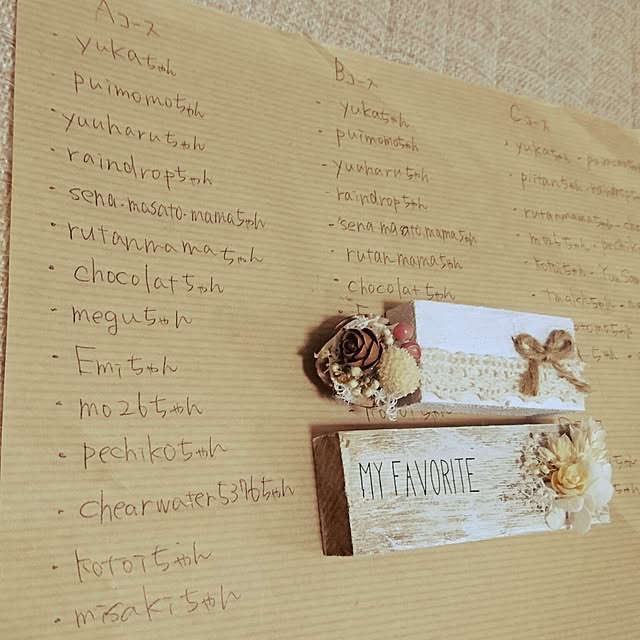 Aコース
・yukaちゃん
・puimomoちゃん
・yuuharuちゃん
・raindropちゃん
・sena.masato.mamaちゃん
・rutanmamaちゃん
・chocolatちゃん
・meguちゃん
・Emiちゃん
・mo26ちゃん
・pechikoちゃん
・chearwater5376ちゃん
・kotoiちゃん
・misakiちゃん
Bコース
・yukaちゃん
・puimomoちゃん
・yuuharuちゃん
・raindropちゃん
・sena.masato.mamaちゃん
・rutanmamaちゃん
・chocolatちゃん
Cコース
・yukaちゃん・puimomo
・piitanちゃん・raindrop
・rutanmamaちゃん
・mo26ちゃん・pechik
MY FAVORITE